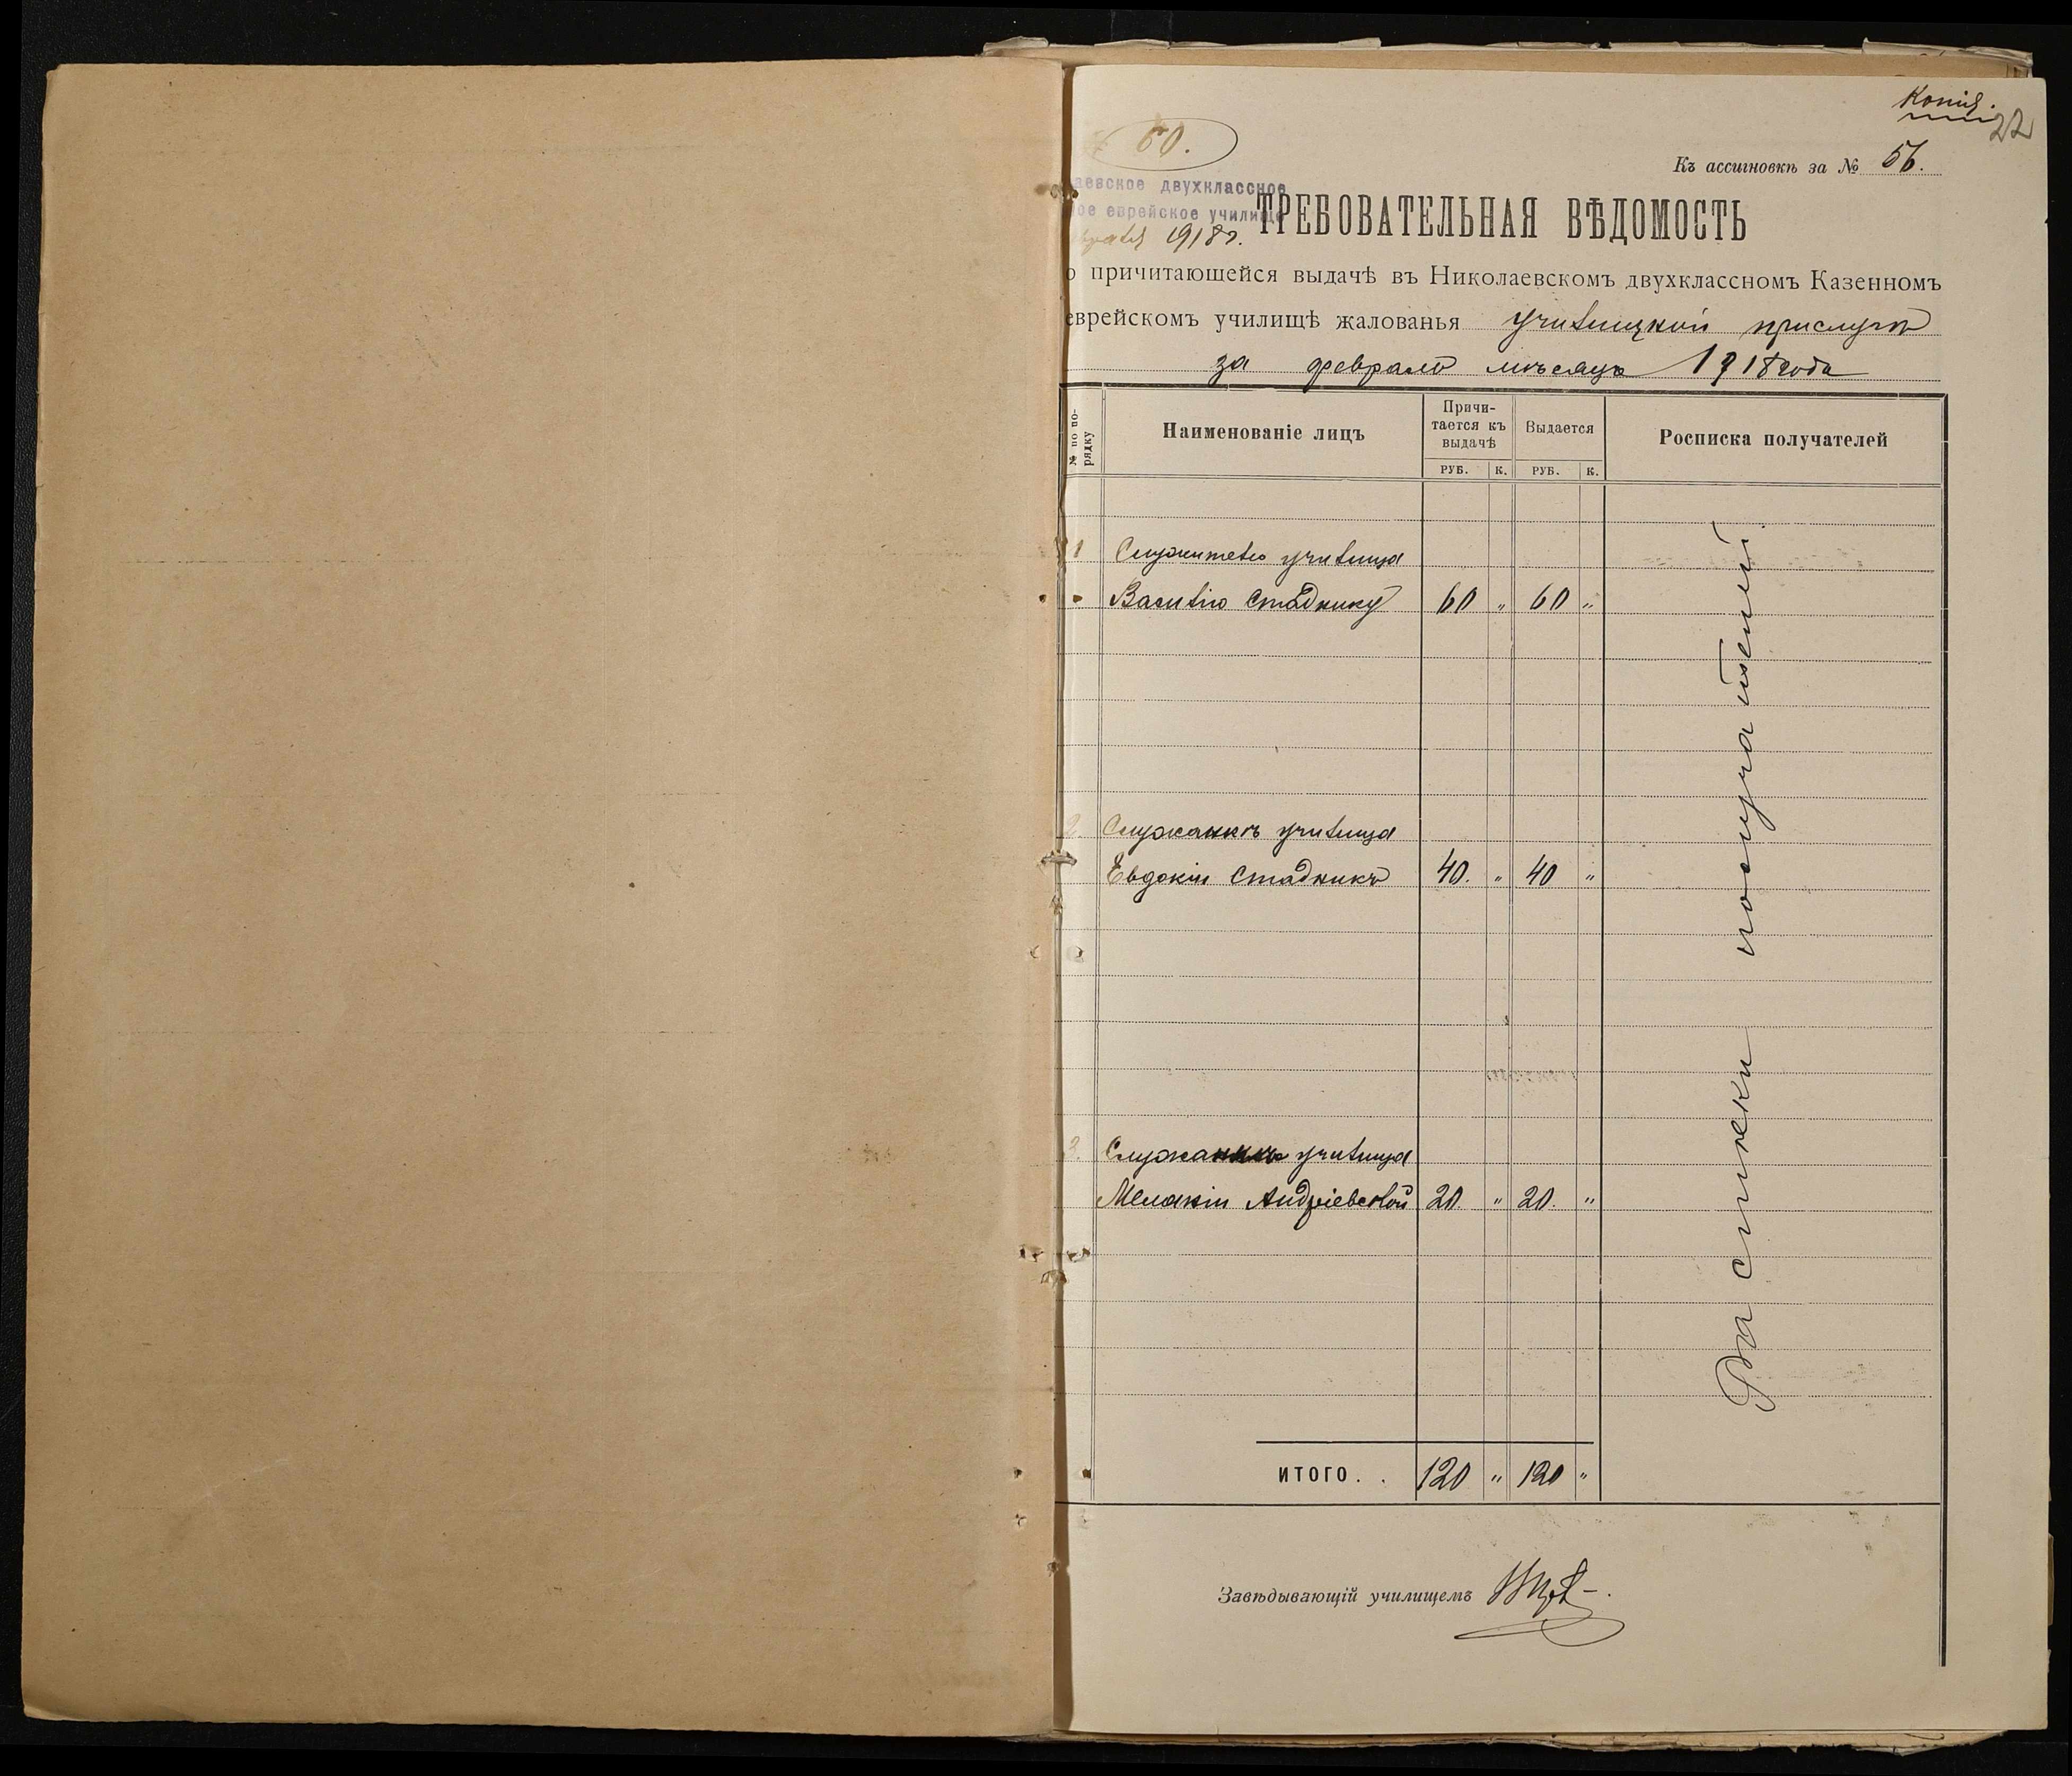 Копія.
22
60.
Къ ассигновкѣ за № 56.
аевское двухклассное
ое еврейское училище
1918 г.
ТРЕБОВАТЕЛЬНАЯ ВѢДОМОСТЬ
о причитающейся выдачѣ въ Николаевскомъ двухклассномъ Казенномъ
еврейскомъ училищѣ жалованья училищной прислугѣ
за февраль мѣсяцъ 1918 года
№ по по-
рядку
Наименованіе лицъ
Причи-
тается къ
выдачѣ
Выдается
Росписка получателей
РУБ. К. РУБ. К.
1 Служителю училища
Василію Стаднику 60 " 60 "
2. Служанкѣ училища
Евдокіи Стадникъ 40. " 40 "
3. Служанкѣ училища
Андріевской 20. " 20. "
Расписки получателей
ИТОГО. . 120 " 120 "
Завѣдывающій училищемъ